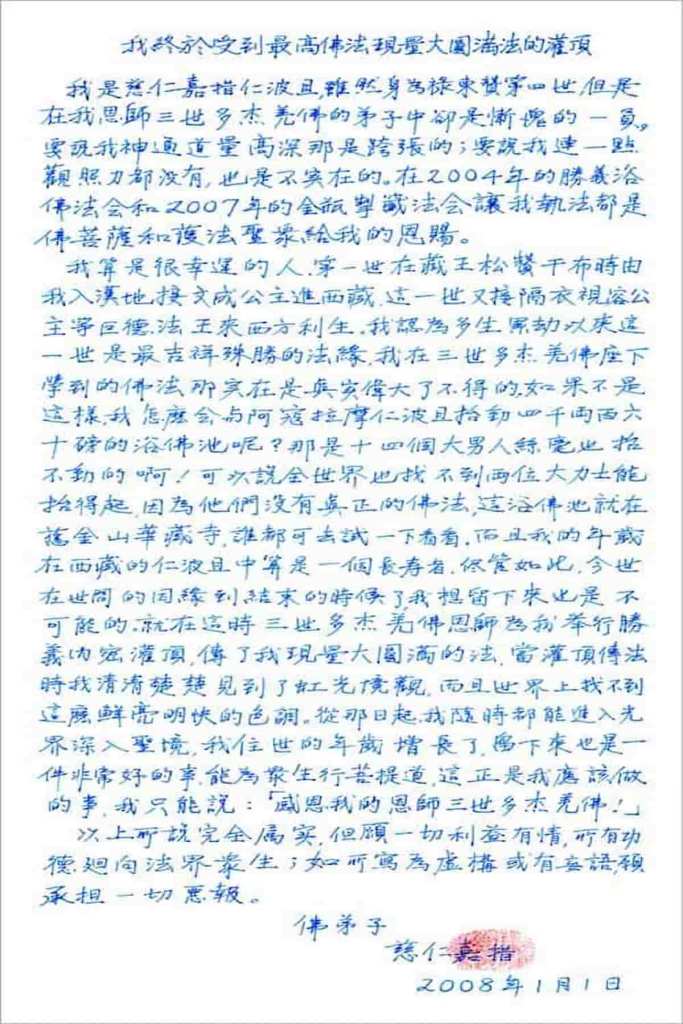 我終於受到最高佛法現量大圓滿法的灌頂
我是慈仁嘉措仁波且,雖然身為祿東贊第四世,但是
在我恩師三世多杰羌佛的弟子中卻是慚愧的一員。
要說我神通道量高深那是誇張的;要說我連一點
觀照力都沒有,也是不实在的。在2004年的勝義浴
佛法会和2007年的金瓶掣籤法会讓我執法都是
佛菩薩和護法聖衆給我的恩賜。
我算是很幸運的人,第一世在藏王松贊干布時由
我入漢地接文成公主進西藏,這一世又接隔衣視溶公
主等巨德法王來西方利生。我認為多生累劫以來這
一世是最吉祥殊勝的法緣,我在三世多杰羌佛座下
學到的佛法那实在是真实偉大了不得的,如果不是
這樣,我怎麽会与阿寇拉摩仁波且抬動四千両百六
十磅的浴佛池呢?那是十四個大男人絲毫也抬
不動的啊!可以說全世界也找不到両位大力士能
抬得起,因為他們沒有真正的佛法,這浴佛池就在
舊金山華藏寺,誰都可去試一下看看。而且我的年歲
在西藏的仁波且中算是一個長寿者,侭管如此,今世
在世間的因緣到結束的時候了,我想留下來也是不
可能的。就在這時三世多杰羌佛恩師為我举行勝
義内密灌頂,傳了我現量大圓滿的法,當灌頂傳法
時我清清楚楚見到了虹光境觀,而且世界上找不到
這麽鮮亮明快的色調。從那日起,我隨時都能進入光
界深入聖境,我住世的年歲增長了,留下來也是一
件非常好的事,能為衆生行菩提道,這正是我應該做
的事,我只能說:「感恩我的恩師三世多杰羌佛!」
以上所說完全属实,但願一切利益有情,所有功
德迴向法界衆生;如所寫為虛構或有妄語,願
承担一切恶報。
佛弟子
慈仁嘉措
2008年1月1日